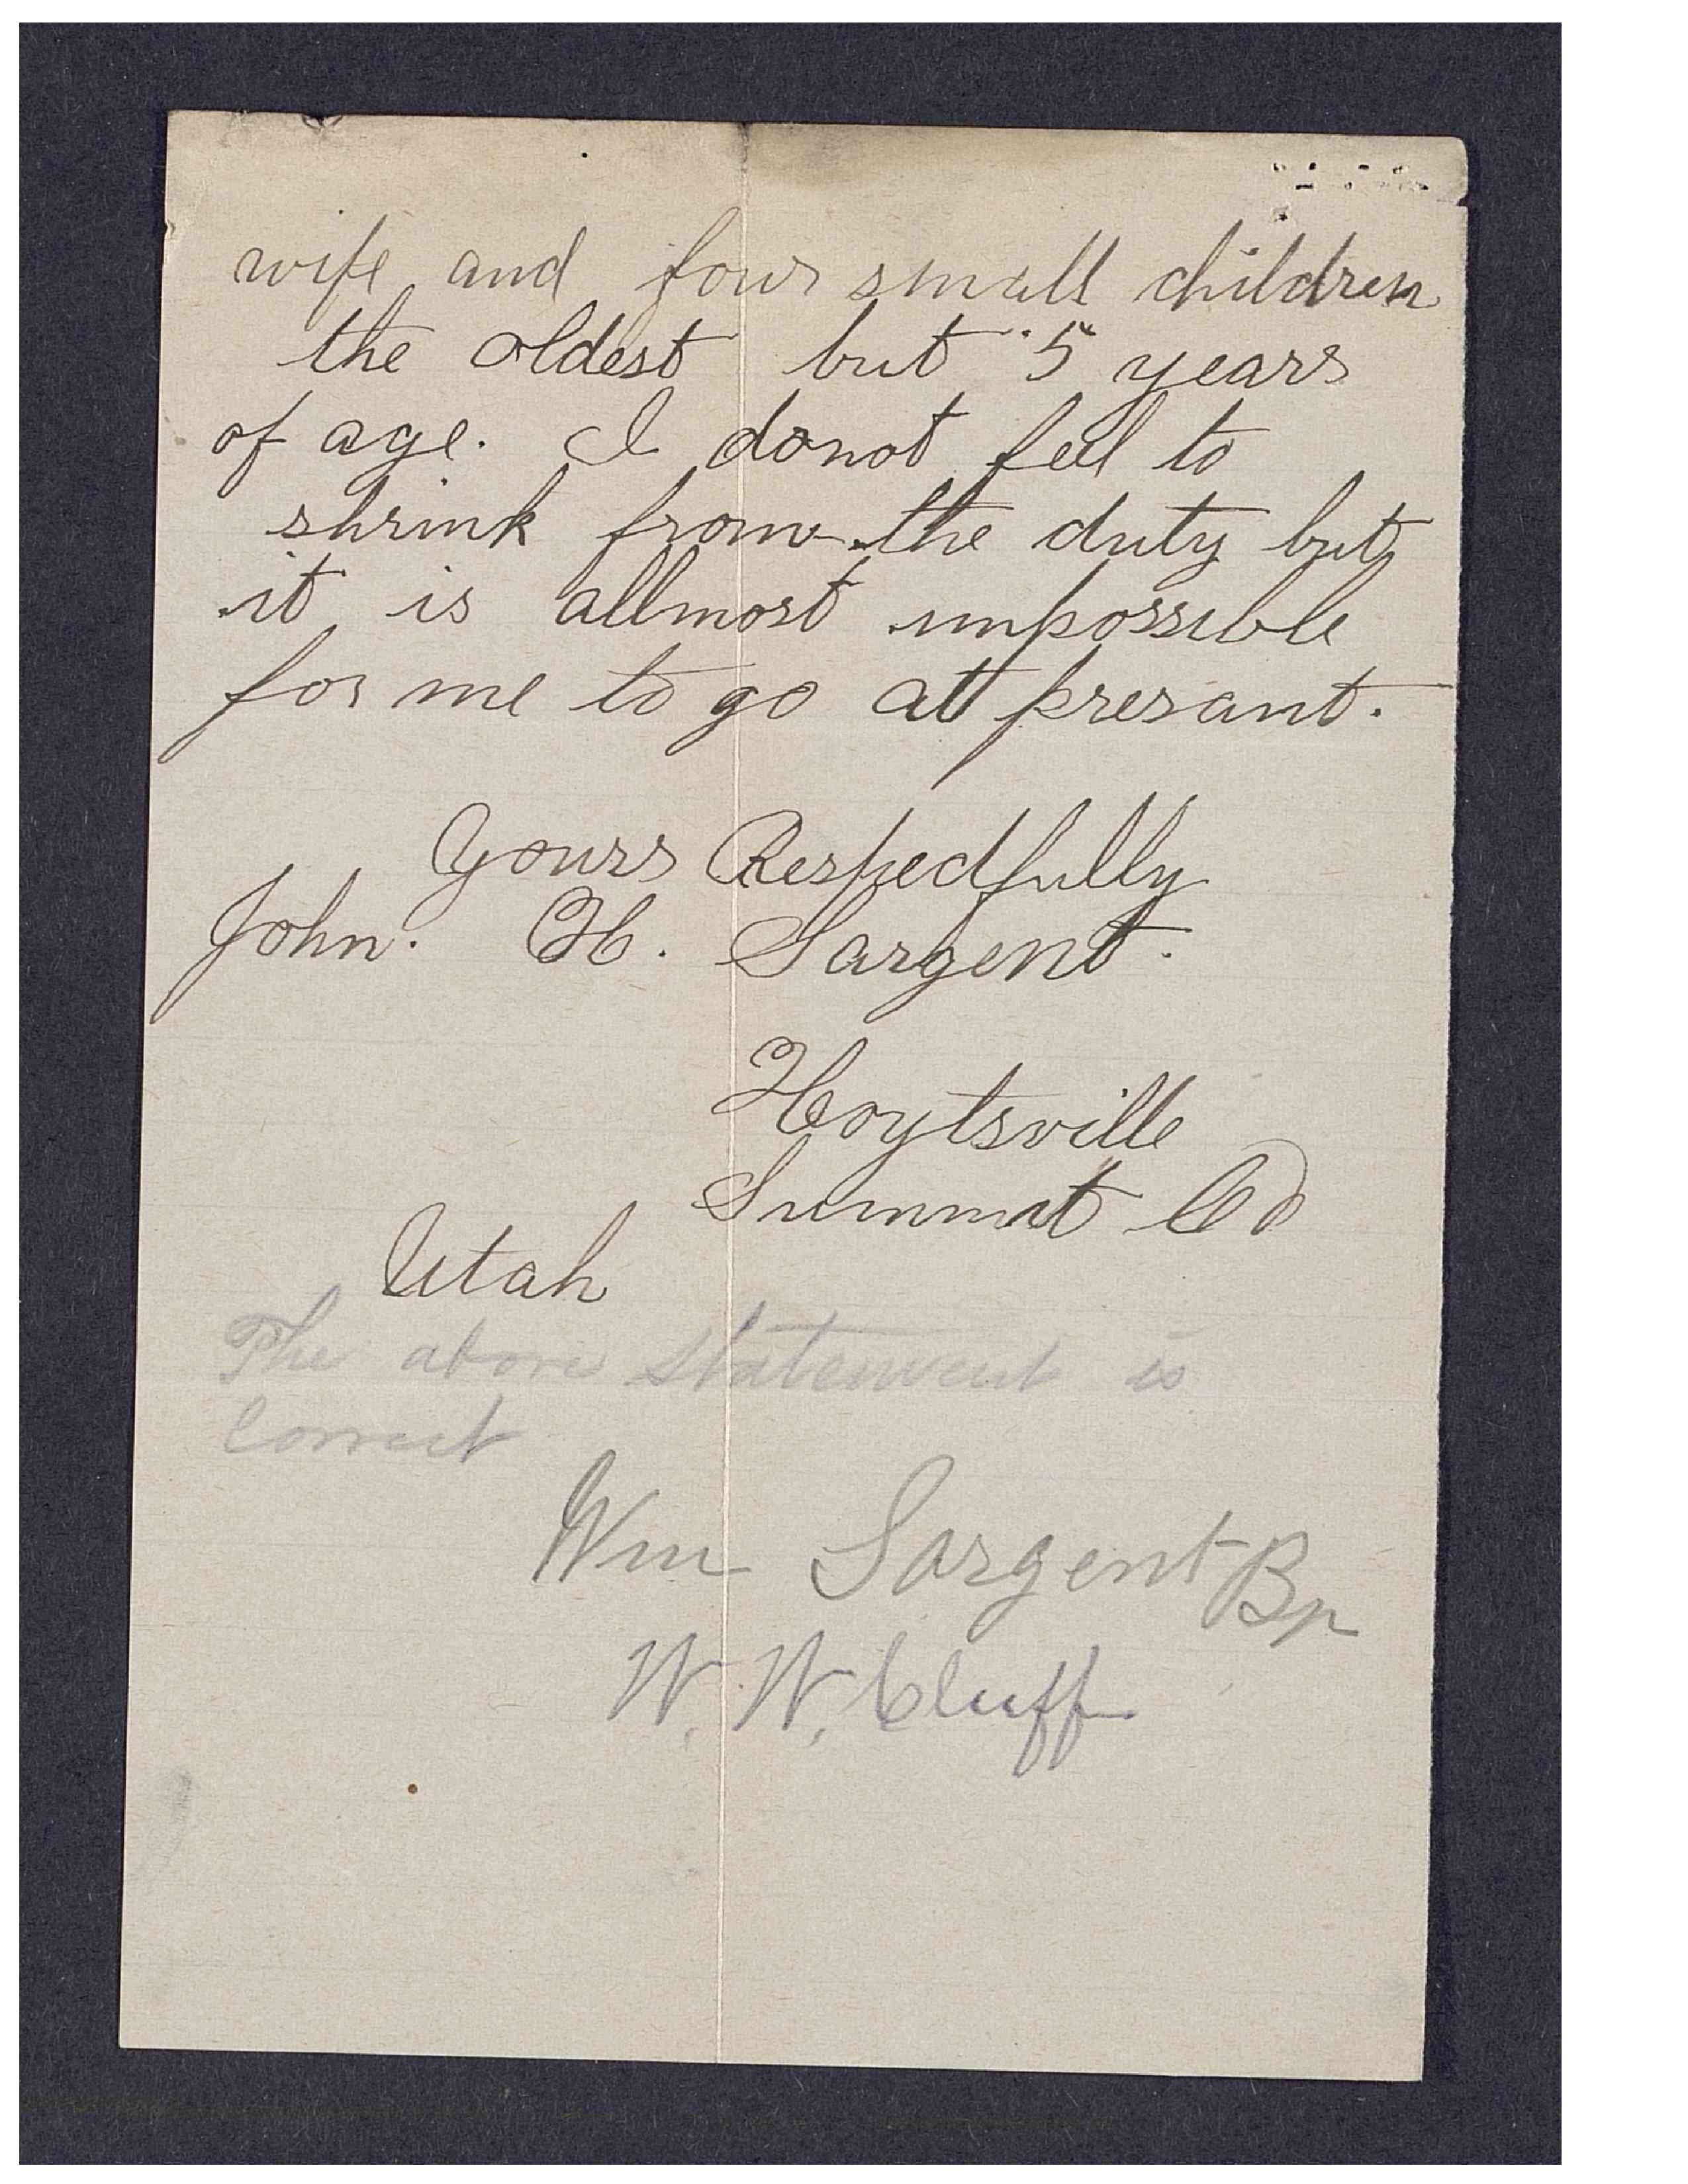 wife and four small children
the oldest but 5 years
of age. I donot feel to
shrink from the duty but
it is allmost impossible
for me to go at presant.
Yours Respectfully
John. H. Sargent.
Hoytsville
Summit Co
Utah
The above statement is
correct
Wm Sargent Bp
W. W. Cluff